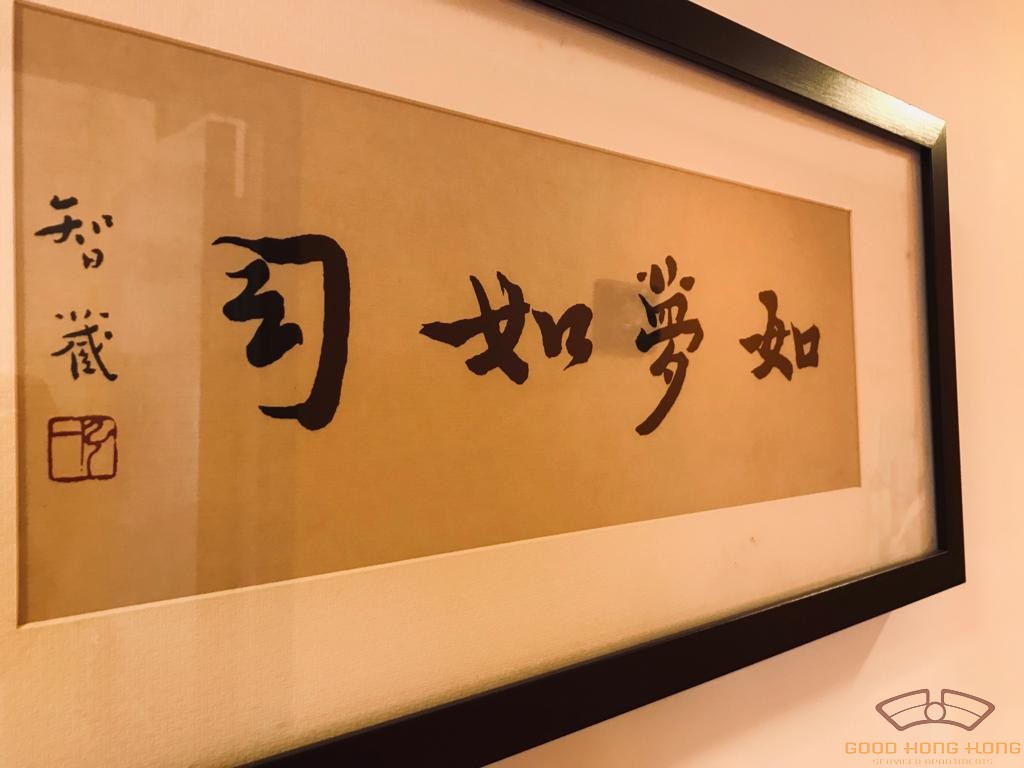 如夢如幻
智藏
GOOD HONG KONG
SERVICED APARTMENTS